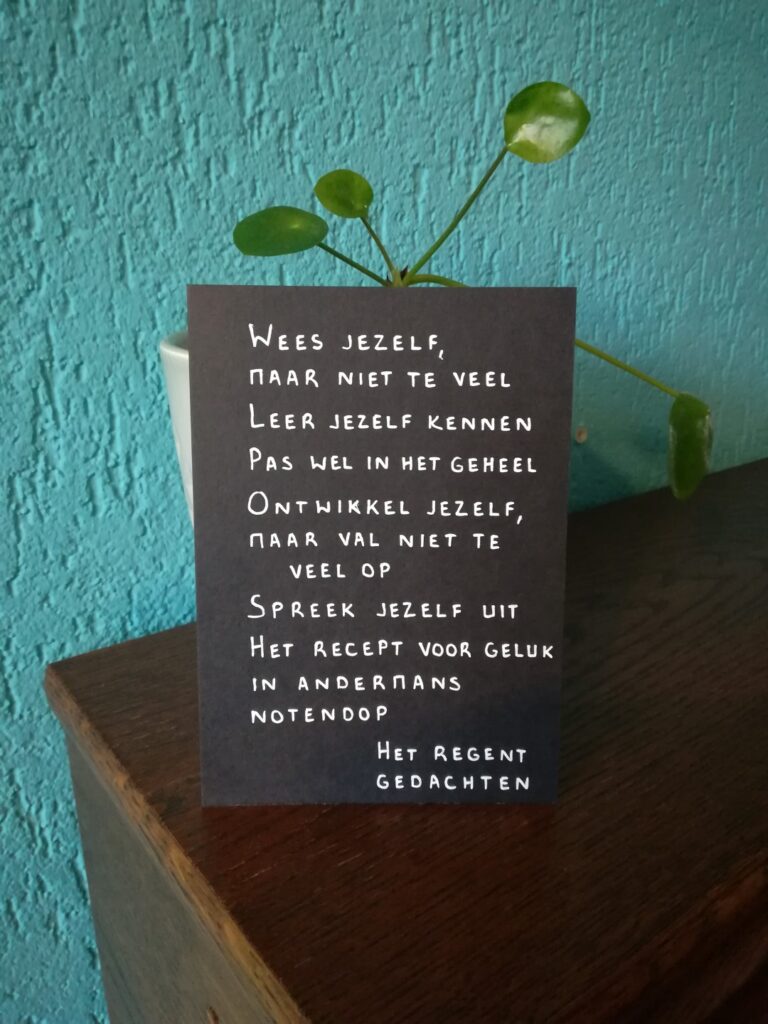 Wees jezelf,
maar niet te veel
Leer jezelf kennen
Pas wel in het geheel
Ontwikkel jezelf,
maar val niet te
veel op
Spreek jezelf uit
Het recept voor geluk
in andermans
notendop
Het regent
gedachten